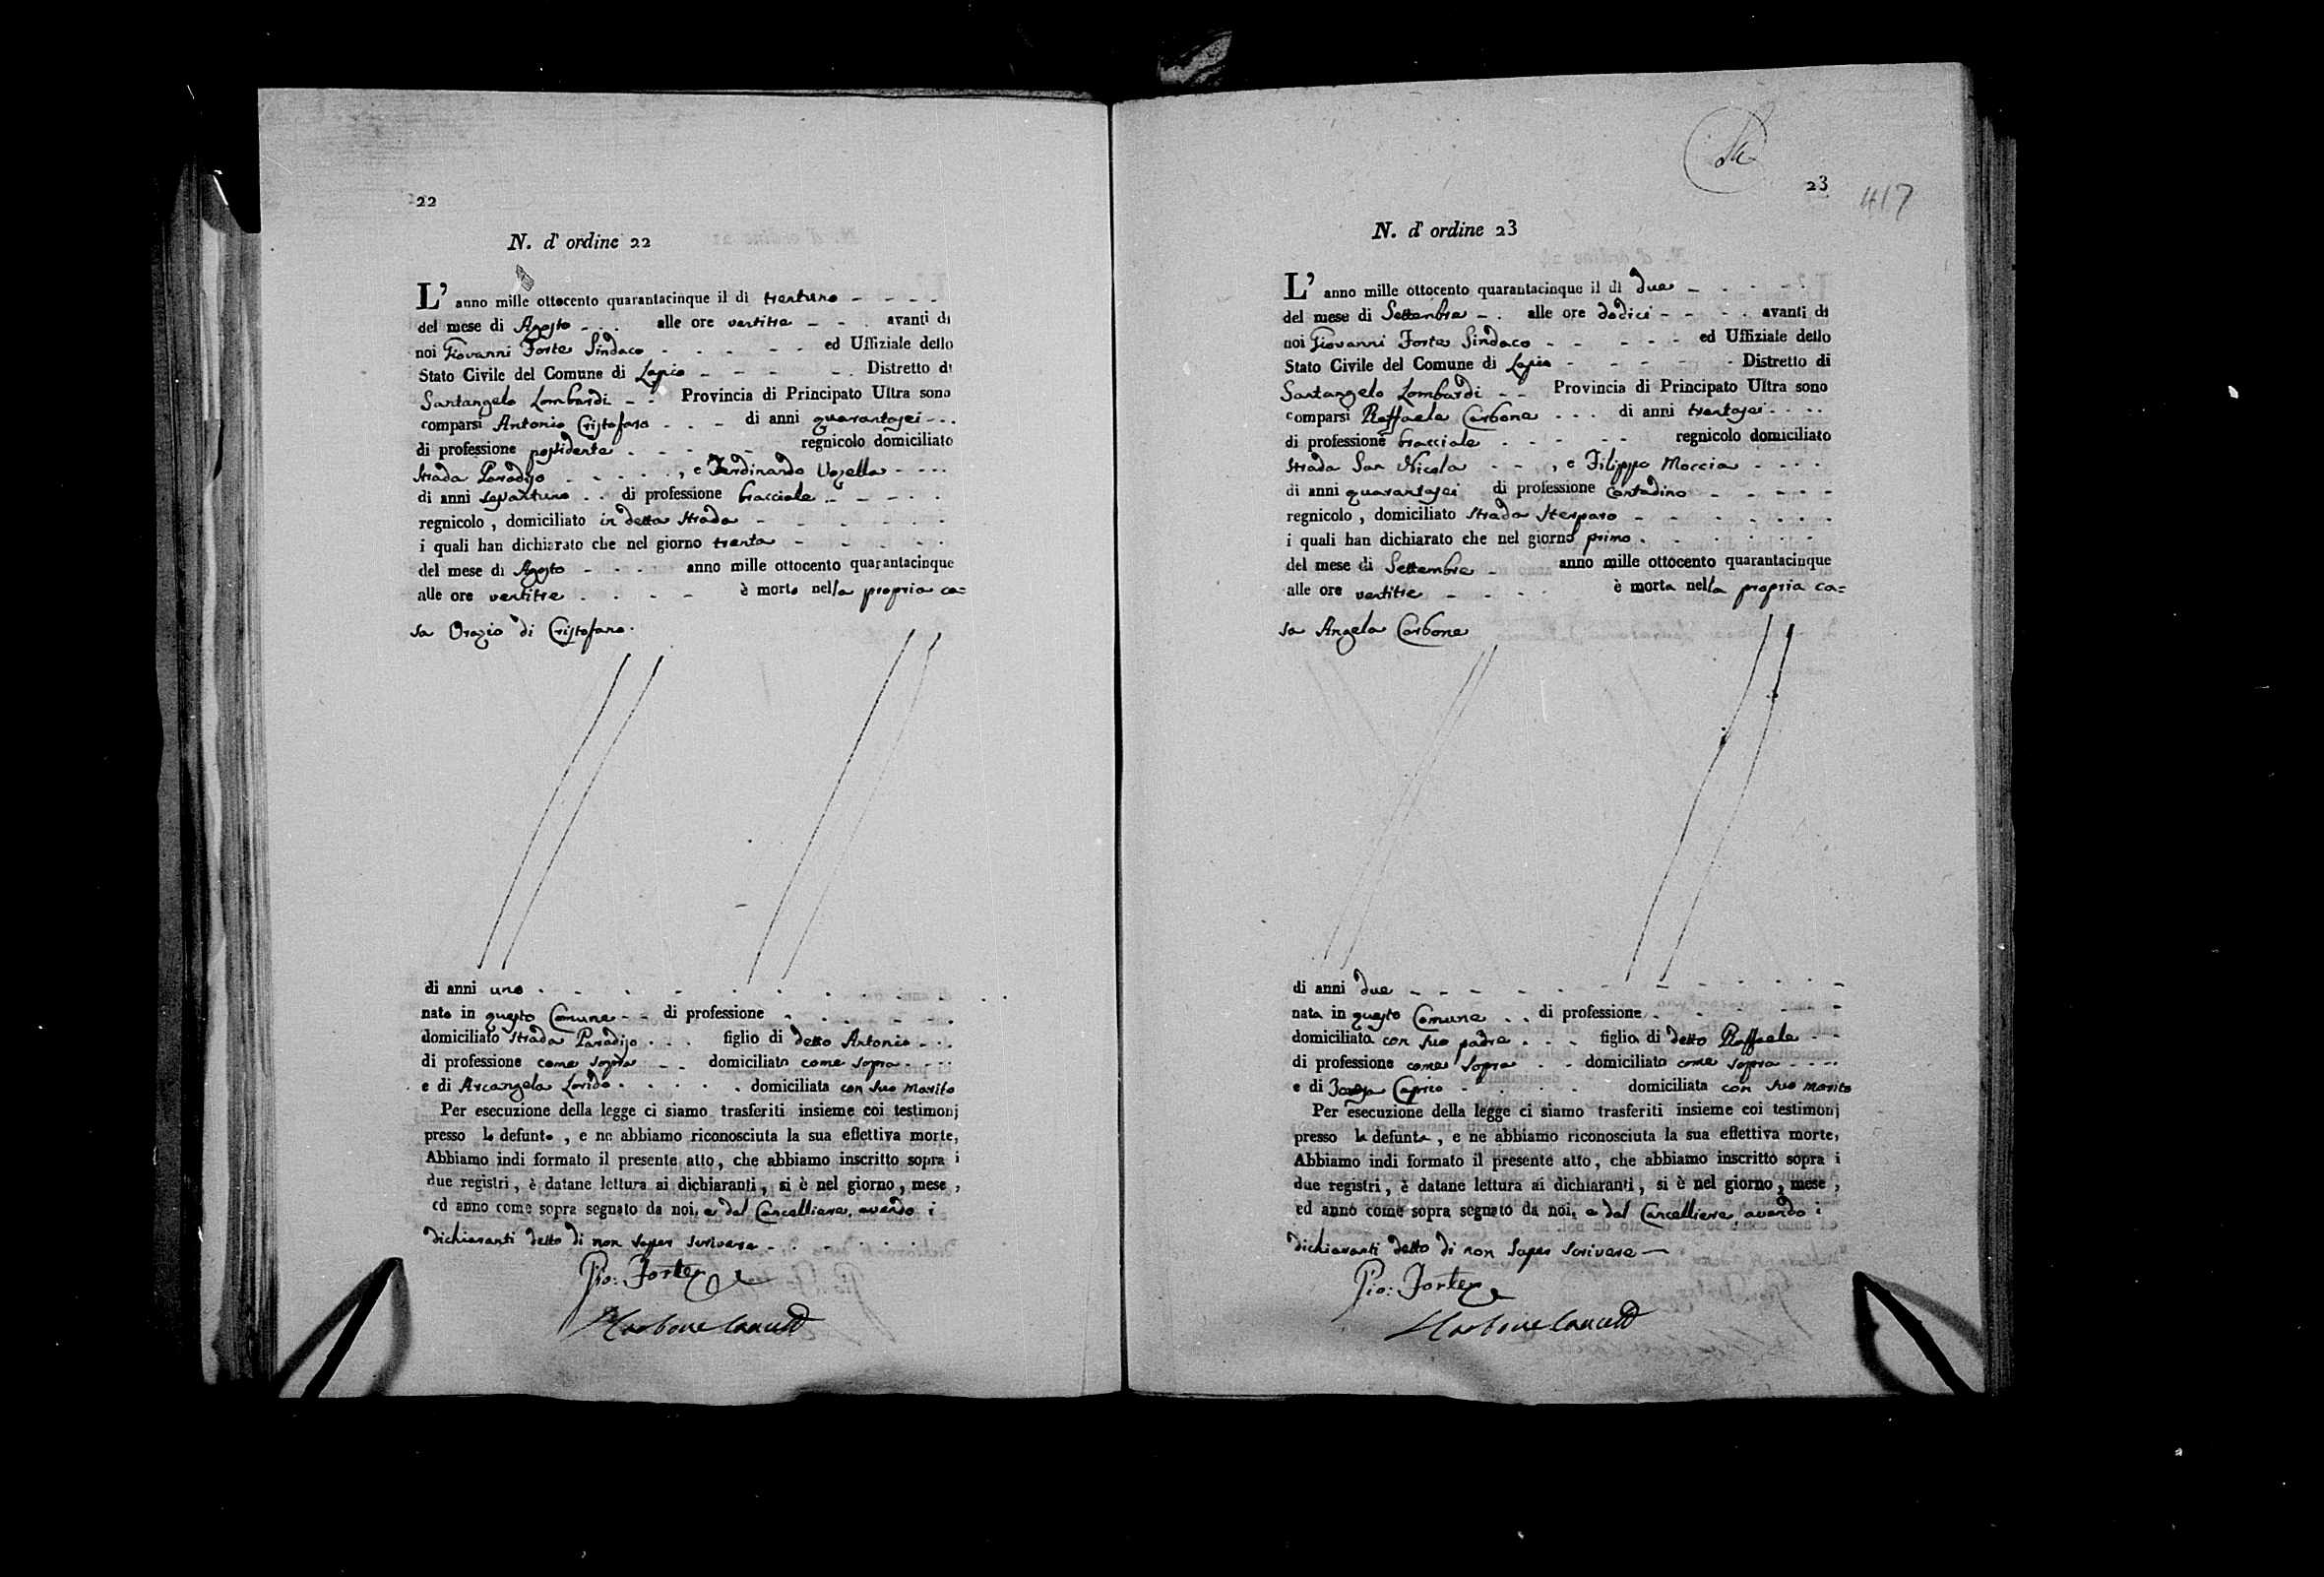 22
N. d' ordine 22
L' anno mille ottocento quarantacinque il dì trentuno
del mese di Agosto alle ore ventitre avanti di
noi Giovanni Forte Sindaco ed Uffiziale dello
Stato Civile del Comune di Lapio Distretto di
Santangelo Lombardi Provincia di Principato Ultra sono
comparsi Antonio Cristofaro di anni quarantasei
di professione possidente regnicolo domiciliato
Strada Paradiso , e Ferdinando
di anni di professione bracciale
regnicolo , domiciliato in detta Strada
i quali han dichiarato che nel giorno trenta
del mese di Agosto anno mille ottocento quarantacinque
alle ore ventitre è morto nella propria ca=
sa Orazio di Cristofaro.
di anni uno
nato in questo Comune di professione
domiciliato Strada Paradiso figlio di detto Antonio
di professione come sopra domiciliato come sopra
e di Arcangela domiciliata con suo marito
Per esecuzione della legge ci siamo trasferiti insieme coi testimonj
presso lo defunto , e ne abbiamo riconosciuta la sua effettiva morte,
Abbiamo indi formato il presente atto, che abbiamo inscritto sopra i
due registri, è datane lettura ai dichiaranti, si è nel giorno, mese ,
ed anno come sopra segnato da noi, e dal Cancelliere, avendo i
dichiaranti detto di non saper scrivere
Gio: Forte
23
417
N. d' ordine 23
L' anno mille ottocento quarantacinque il dì due
del mese di Settembre alle ore dodici avanti di
noi Giovanni Forte Sindaco ed Uffiziale dello
Stato Civile del Comune di Lapio Distretto di
Santangelo Lombardi Provincia di Principato Ultra sono
comparsi Raffaele Carbone di anni trentasei
di professione bracciale regnicolo domiciliato
Strada San Nicola , e Filippo Moccia
di anni quarantasei di professione contadino
regnicolo , domiciliato Strada
i quali han dichiarato che nel giorno primo
del mese di Settembre anno mille ottocento quarantacinque
alle ore ventitre è morta nella propria ca=
sa Angela Carbone
di anni due
nata in questo Comune di professione
domiciliata con suo padre figlia di detto Raffaele
di professione come sopra domiciliato come sopra
e di Caprio domiciliata con suo marito
Per esecuzione della legge ci siamo trasferiti insieme coi testimonj
presso la defunta , e ne abbiamo riconosciuta la sua effettiva morte,
Abbiamo indi formato il presente atto, che abbiamo inscritto sopra i
due registri, è datane lettura ai dichiaranti, si è nel giorno, mese ,
ed anno come sopra segnato da noi, e dal Cancelliere avendo i
dichiaranti detto di non saper scrivere
Gio: Forte